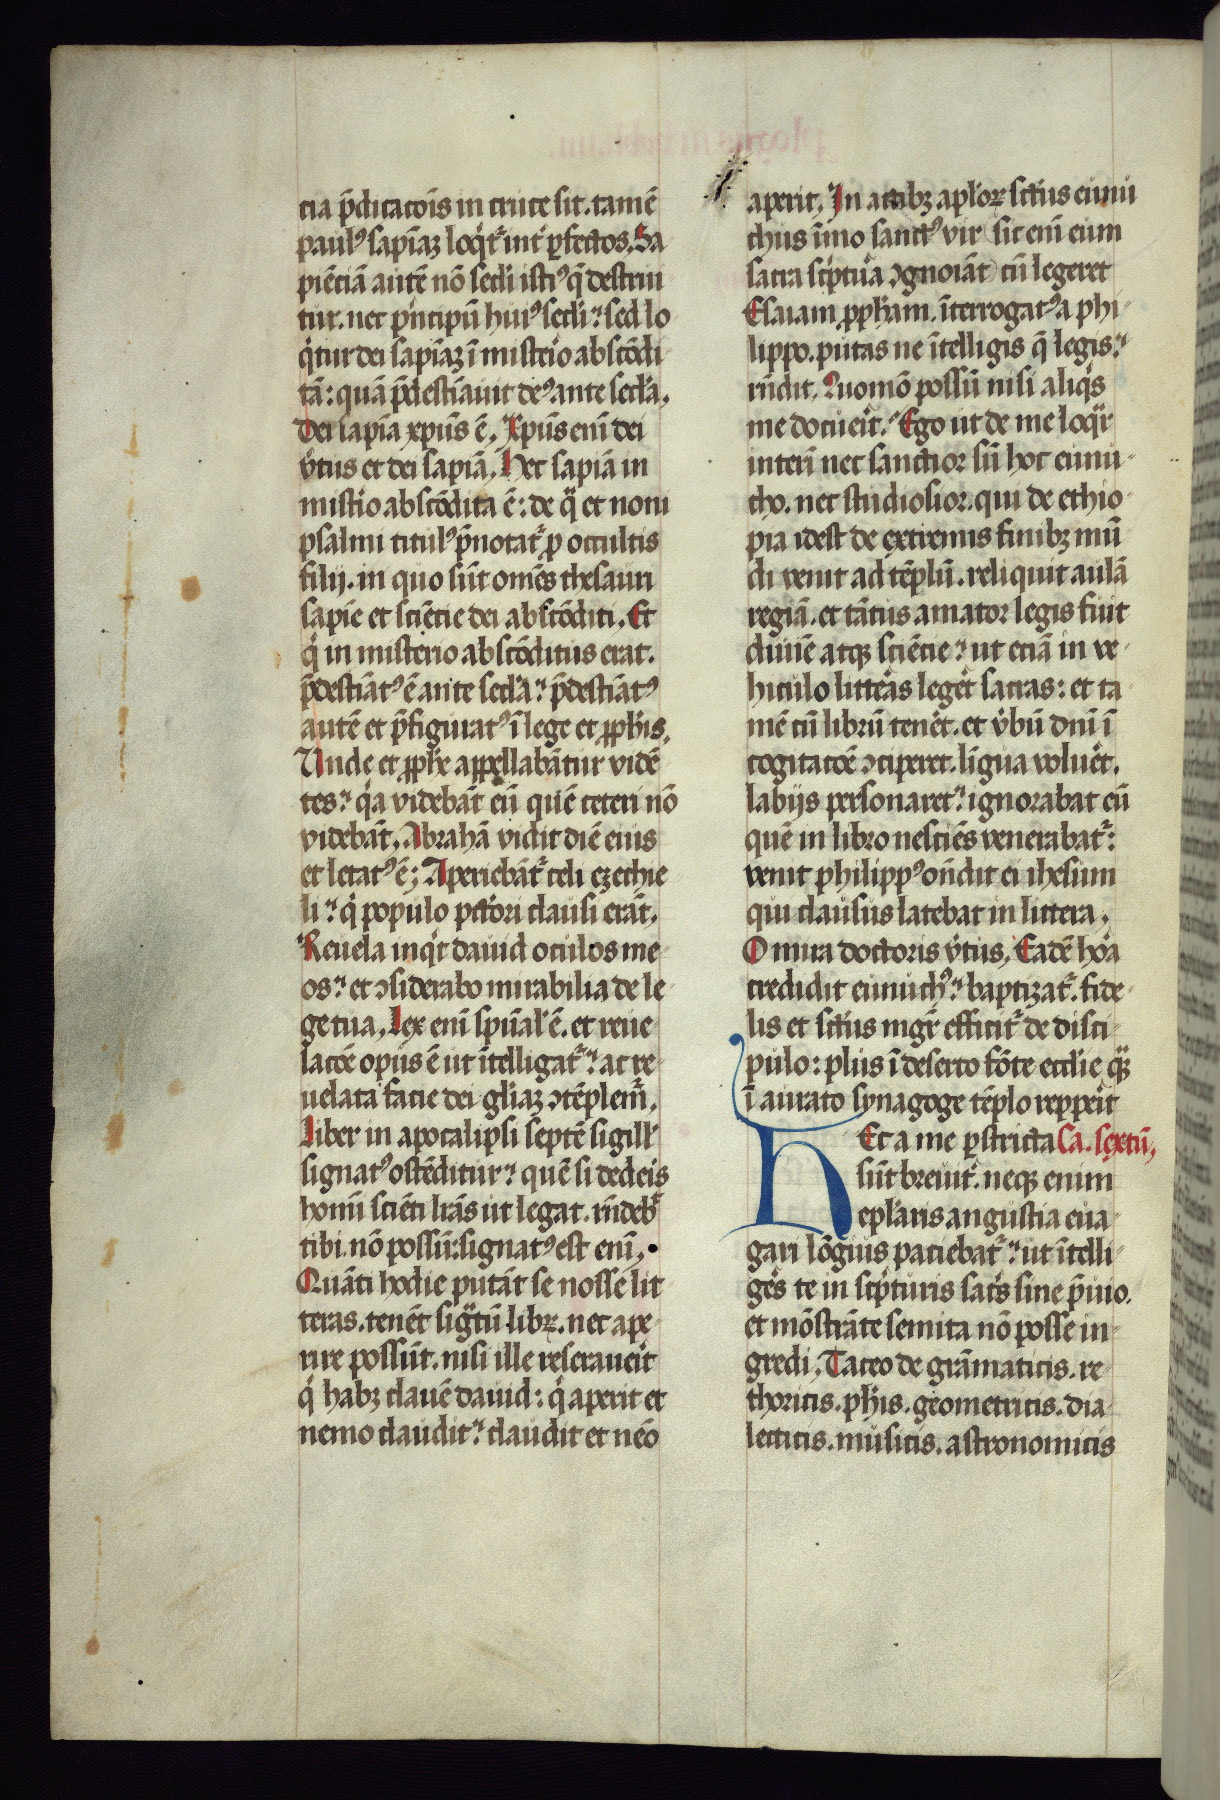 cia p̄dicatōis in cruce sit. tamē
paulꝰ sapīaꝫ loq̇tᷣ int̾ ꝑfectos. Sa
piēciā autē nō secl̓i istiꝰ q̄ destrui
tur. nec p̓ncipū huiꝰ secl̓i? sed lo
q̇tur dei sapīaꝫ ī mist̾io abscōdi
tā: quā p̄destīauit deꝰ ante secl̓a.
Dei sapīa xp̄us ē. Xp̄us enī dei
v̓tus et dei sapīa. Hec sapīa in
mist̾io abscōdita ē: de q̈ et noni
psalmi titulꝰ p̄notatᷣ ꝓ occultis
filij. in quo sūt om̄es thesauri
sapīe et sciēcie dei abscōditi. Et
q̇ in misterio absconditus erat.
p̄destīatꝰ ē ante secl̓a? p̄destīatꝰ
autē et p̄figuratꝰ ī lege et ꝓph̓is.
Unde et ꝓph̓e appellabātur vidē
tes? q̇a videbāt eū quē ceteri nō
videbāt. Abrahā vidit diē eius
et letatꝰ ē; Aperiebātᷣ celi ezechie
li? q̇ populo pctōri clausi erāt.
Reuela inq̇t dauid oculos me
os? et ꝯsiderabo mirabilia de le
ge tua. Lex enī spūal̓ ē. et reue
lacōe opus ē ut ītelligatᷣ? ac re
uelata facie dei gl̓iaꝫ ꝯtēplemᷣ.
Liber in apocalipsi septē sigill̓
signatꝰ ostēditur? quē si dedeīs
homī sciēti lrās ut legat. rn̄debᷣ
tibi. nō possū: signatꝰ est enī.
Quāti hodie putāt se nosse lit
teras. tenēt sig̈tū librꝫ. nec ape
rire possūt. nisi ille reserauerit
q̇ habꝫ clauē dauid: q̇ aperit et
nemo claudit? claudit et nēo
aperit. In actibꝫ apl̓oꝝ scūs eunu
chus īmo sanctꝰ vir sic enī eum
sacra sc̓ptura ꝯgnoīat cū legeret
Esaiam ꝓph̓am. īterrogatꝰ a phi
lippo. putas ne ītelligis q̄ legis?
rn̄dit. Quomō possū nisi aliq̇s
me docueīt. Ego ut de me loq̈r
interī nec sanctior sū hoc eunu
cho. nec studiosior. qui de ethio
pia idest de extremis finibꝫ mū
di venit ad tēplū. reliquit aulā
regiā. et tātus amator legis fuit
diuiē atqꝫ sciēcie? ut eciā in ve
hiculo litteās leget̾ sacras: et ta
mē cū librū tenet̾. et v̓bū dnī ī
cogitacōe ꝯciperet. līgua voluet̾.
labijs personaret? ignorabat eū
quē in libro nesciēs venerabatᷣ:
venit philippꝰ on̄dit ei ihesum
qui clausus latebat in littera.
O mira doctoris v̓tus. Eadē hōa
credidit eunuchꝰ? baptizatᷣ. fide
lis et scūs mgr̄ efficitᷣ de disci
pulo: plus ī deserto fōte eccl̓ie q̈ꝫ
ī aurato synagoge tēplo repperit
Ec a me ꝑstricta Ca. sextū,
sūt breuit̾. neqꝫ enim
epl̓aris angustia eua
gari lōgius paciebatᷣ? ut ītelli
ges te in sc̓pturis sac̓s sine p̄uio.
et mōstrāte semita nō posse in
gredi. Taceo de grāmaticis. re
thoricis. ph̓is. geometricis. dia
lecticis. musicis. astronomicis